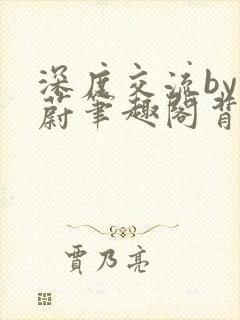 深度交流by
蔚笔趣阁背
贾乃亮